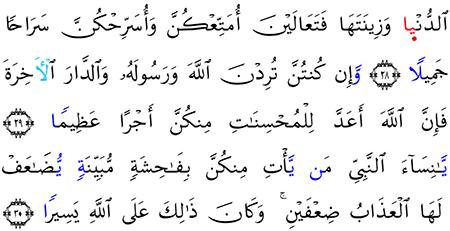 ٱلدُّنْيَا وَزِينَتَهَا فَتَعَالَيْنَ أُمَتِّعْكُنَّ وَأُسَرِّحْكُنَّ سَرَاحًا
جَمِيلًا ٢٨ وَإِن كُنتُنَّ تُرِدْنَ ٱللَّهَ وَرَسُولَهُۥ وَٱلدَّارَ ٱلْأَخِرَةَ
فَإِنَّ ٱللَّهَ أَعَدَّ لِلْمُحْسِنَـٰتِ مِنكُنَّ أَجْرًا عَظِيمًا ٢٩
يَـٰنِسَآءَ ٱلنَّبِىِّ مَن يَأْتِ مِنكُنَّ بِفَـٰحِشَةٍ مُّبَيِّنَةٍ يُضَـٰعَفْ
لَهَا ٱلْعَذَابُ ضِعْفَيْنِ ۚ وَكَانَ ذَٰلِكَ عَلَى ٱللَّهِ يَسِيرًا ٣٠